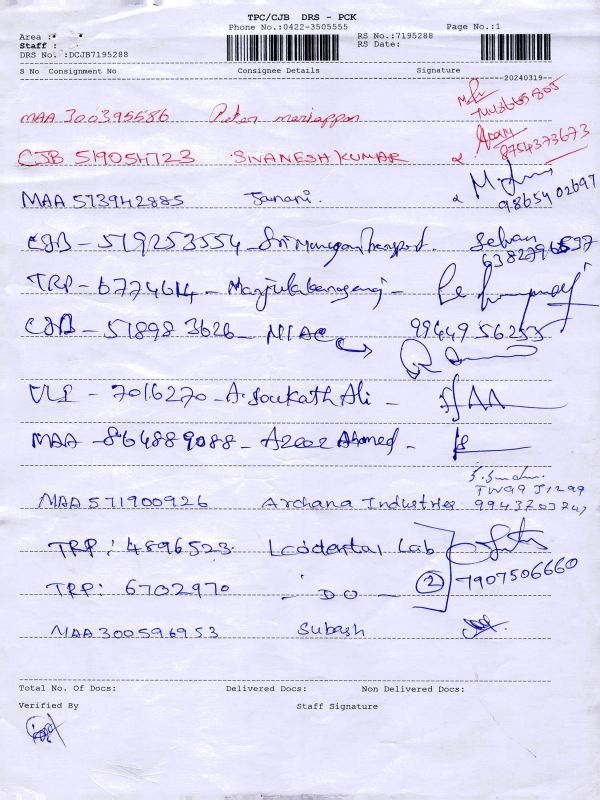 TPC/CJB DRS - PCK
Phone No.:0422-3505555 Page No.:1
Area :
Staff : RS No.:7195288
DRS No. :DCJB7195288 RS Date:
S No Consignment No Consignee Details Signature
20240319
MAA 300395586 Peter mariappan
CJB 519054723 SIVANESH KUMAR 8754373673
MAA 573942885 Janani. 9865402697
CJB - 519253554 - Sri Murugan Transport. Selvan
TRP - 6774614 -
CJB - 518983626 - NIAC 99449 56255
- 7016270 - A. Soukath Ali -
MAA - 864889088 - Azeez Ahmed -
MAA 571900926 Archana Industries
TRP: 4896523 Lcodental Lab
TRP: 6702970 - DO - 2 7907506660
MAA 300596953 Subash
Total No. Of Docs: Delivered Docs: Non Delivered Docs:
Verified By Staff Signature